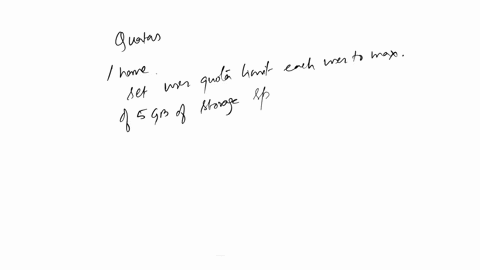 Quotas
/home.
set user quota limit each user to max.
of 5 GB of storage sp